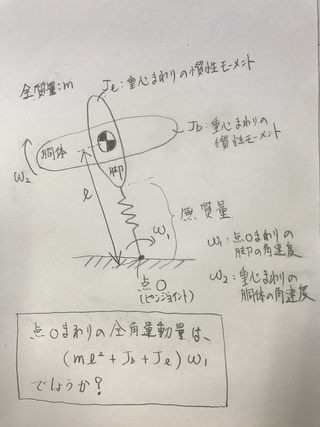 全質量:m
Jℓ:重心まわりの慣性モーメント
Jb:重心まわりの
慣性モーメント
胴体
脚
ω2
ℓ
無質量
ω1
ω1:点Oまわりの
脚の角速度
ω2:重心まわりの
胴体の角速度
点O
(ピンジョイント)
点Oまわりの全角運動量は、
(mℓ²+Jb+Jℓ)ω1
でしょうか?